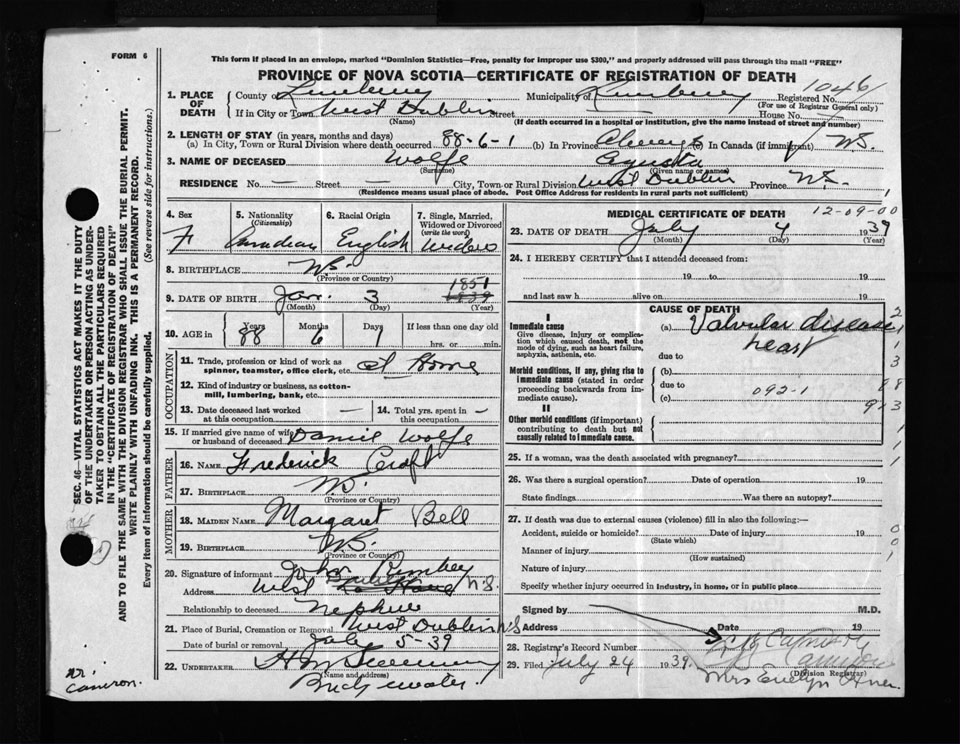 FORM 6
This form if placed in an envelope, marked "Dominion Statistics—Free, penalty for improper use $300," and properly addressed will pass through the mail "FREE"
PROVINCE OF NOVA SCOTIA—CERTIFICATE OF REGISTRATION OF DEATH
1046
1. PLACE OF DEATH County of Lunenburg Municipality of Lunenburg Registered No.
(For use of Registrar General only)
If in City or Town West Dublin Street House No.
(Name) (If death occurred in a hospital or institution, give the name instead of street and number)
2. LENGTH OF STAY (in years, months and days)
(a) In City, Town or Rural Division where death occurred 88-6-1 (b) In Province Always (c) In Canada (if immigrant)
3. NAME OF DECEASED Wolfe Agusta
(Surname) (Given name or names)
RESIDENCE No. — Street — City, Town or Rural Division West Dublin Province N.S.
(Residence means usual place of abode. Post Office Address for residents in rural parts not sufficient)
4. Sex F
5. Nationality (Citizenship) Canadian
6. Racial Origin English
7. Single, Married, Widowed or Divorced (write the word) Widow
8. BIRTHPLACE N.S.
(Province or Country)
9. DATE OF BIRTH Jan. 3 1851
(Month) (Day) (Year)
10. AGE in Years 88 Months 6 Days 1 If less than one day old hrs. or min.
OCCUPATION
11. Trade, profession or kind of work as spinner, teamster, office clerk, etc. at Home
12. Kind of industry or business, as cotton-mill, lumbering, bank, etc.
13. Date deceased last worked at this occupation —
14. Total yrs. spent in this occupation —
15. If married give name of wife or husband of deceased Daniel Wolfe
FATHER
16. NAME Frederick Croft
17. BIRTHPLACE N.S.
(Province or Country)
MOTHER
18. MAIDEN NAME Margaret Bell
19. BIRTHPLACE N.S.
(Province or Country)
20. Signature of informant John
Address West N.S.
Relationship to deceased Nephew
21. Place of Burial, Cremation or Removal West Dublin N.S
Date of burial or removal July 5-39
22. UNDERTAKER
(Name and address)
Bridgewater.
Dr. Cameron.
MEDICAL CERTIFICATE OF DEATH
12-09-00
23. DATE OF DEATH July 4 1939
(Month) (Day) (Year)
24. I HEREBY CERTIFY that I attended deceased from:
19 to 19
and last saw h alive on 19
CAUSE OF DEATH
I
Immediate cause
Give disease, injury or complication which caused death, not the mode of dying, such as heart failure, asphyxia, asthenia, etc.
(a) Valvular disease heart
due to
Morbid conditions, if any, giving rise to immediate cause (stated in order proceeding backwards from immediate cause).
(b)
due to
(c) 092-1
II
Other morbid conditions (if important) contributing to death but not causally related to immediate cause.
25. If a woman, was the death associated with pregnancy?
26. Was there a surgical operation? Date of operation 19
State findings Was there an autopsy?
27. If death was due to external causes (violence) fill in also the following:—
Accident, suicide or homicide? Date of injury 19
(State which)
Manner of injury
(How sustained)
Nature of injury
Specify whether injury occurred in industry, in home, or in public place
Signed by M.D.
Address Date 19
28. Registrar's Record Number
29. Filed July 24 1939.
(Division Registrar)
Mrs Evelyn
SEC. 46—VITAL STATISTICS ACT MAKES IT THE DUTY OF THE UNDERTAKER OR PERSON ACTING AS UNDERTAKER TO OBTAIN ALL THE PARTICULARS REQUIRED IN THE "CERTIFICATE OF REGISTRATION OF DEATH" AND TO FILE THE SAME WITH THE DIVISION REGISTRAR WHO SHALL ISSUE THE BURIAL PERMIT.
WRITE PLAINLY WITH UNFADING INK. THIS IS A PERMANENT RECORD.
Every item of information should be carefully supplied. (See reverse side for instructions.)